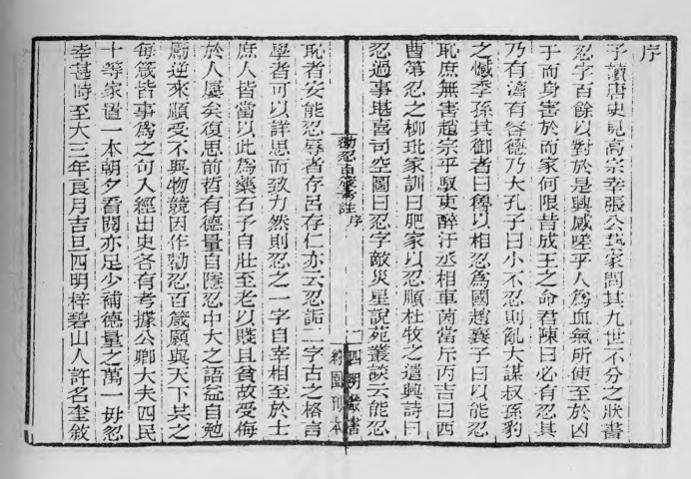 序
予讀唐史見高宗幸張公藝家問其九世不分之狀書
忍字百餘以對於是興感嗟乎人爲血氣所使至於凶
于而身害於而家何限昔成王之命君陳曰必有忍其
乃有濟有容德乃大孔子曰小不忍則亂大謀叔孫豹
之憾季孫其御者曰魯以相忍爲國趙襄子曰以能忍
恥庶無害趙宗乎馭吏醉汙丞相車茵當斥丙吉曰西
曹第忍之柳玭家訓曰肥家以忍順杜牧之遣興詩曰
忍過事堪喜司空圖曰忍字敵災星說苑叢談云能忍
勸忍百箴考註 序
一 四明叢書
約園刊本
恥者安能忍辱者存呂存仁亦云忍詬二字古之格言
學者可以詳思而致力然則忍之一字自宰相至於士
庶人皆當以此爲藥石予自壯至老以賤且貧故受侮
於人屢矣復思前哲有德量自隱忍中大之語益自勉
厲逆來順受不與物競因作勸忍百箴願與天下共之
每箴皆事爲之句入經出史各有考據公卿大夫四民
十等家置一本朝夕看閱亦足少補德量之萬一毋忽
幸甚時至大三年良月吉旦四明梓碧山人許名奎敘